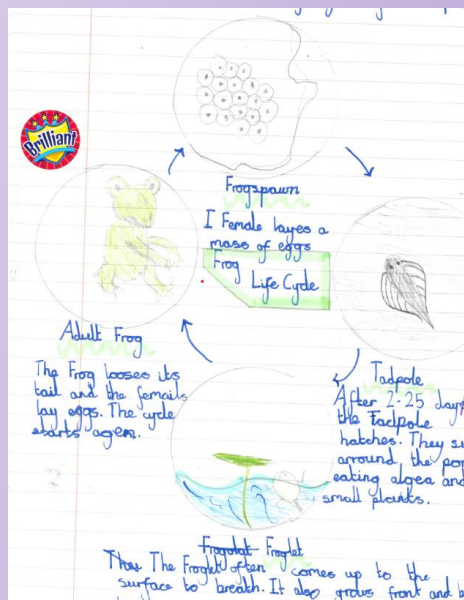 Brilliant
Frogspawn
I Female layes a
mass of eggs
Frog
Life Cycle
Adult Frog
The Frog looses its
tail and the femails
lay eggs. The cycle
starts agen.
Tadpole
After 2-25 days
the Tadpole
hatches. They
arround the
eating algea and
small plants.
Froglet
The Froglet often comes up to the
surface to breath. It also grows front and